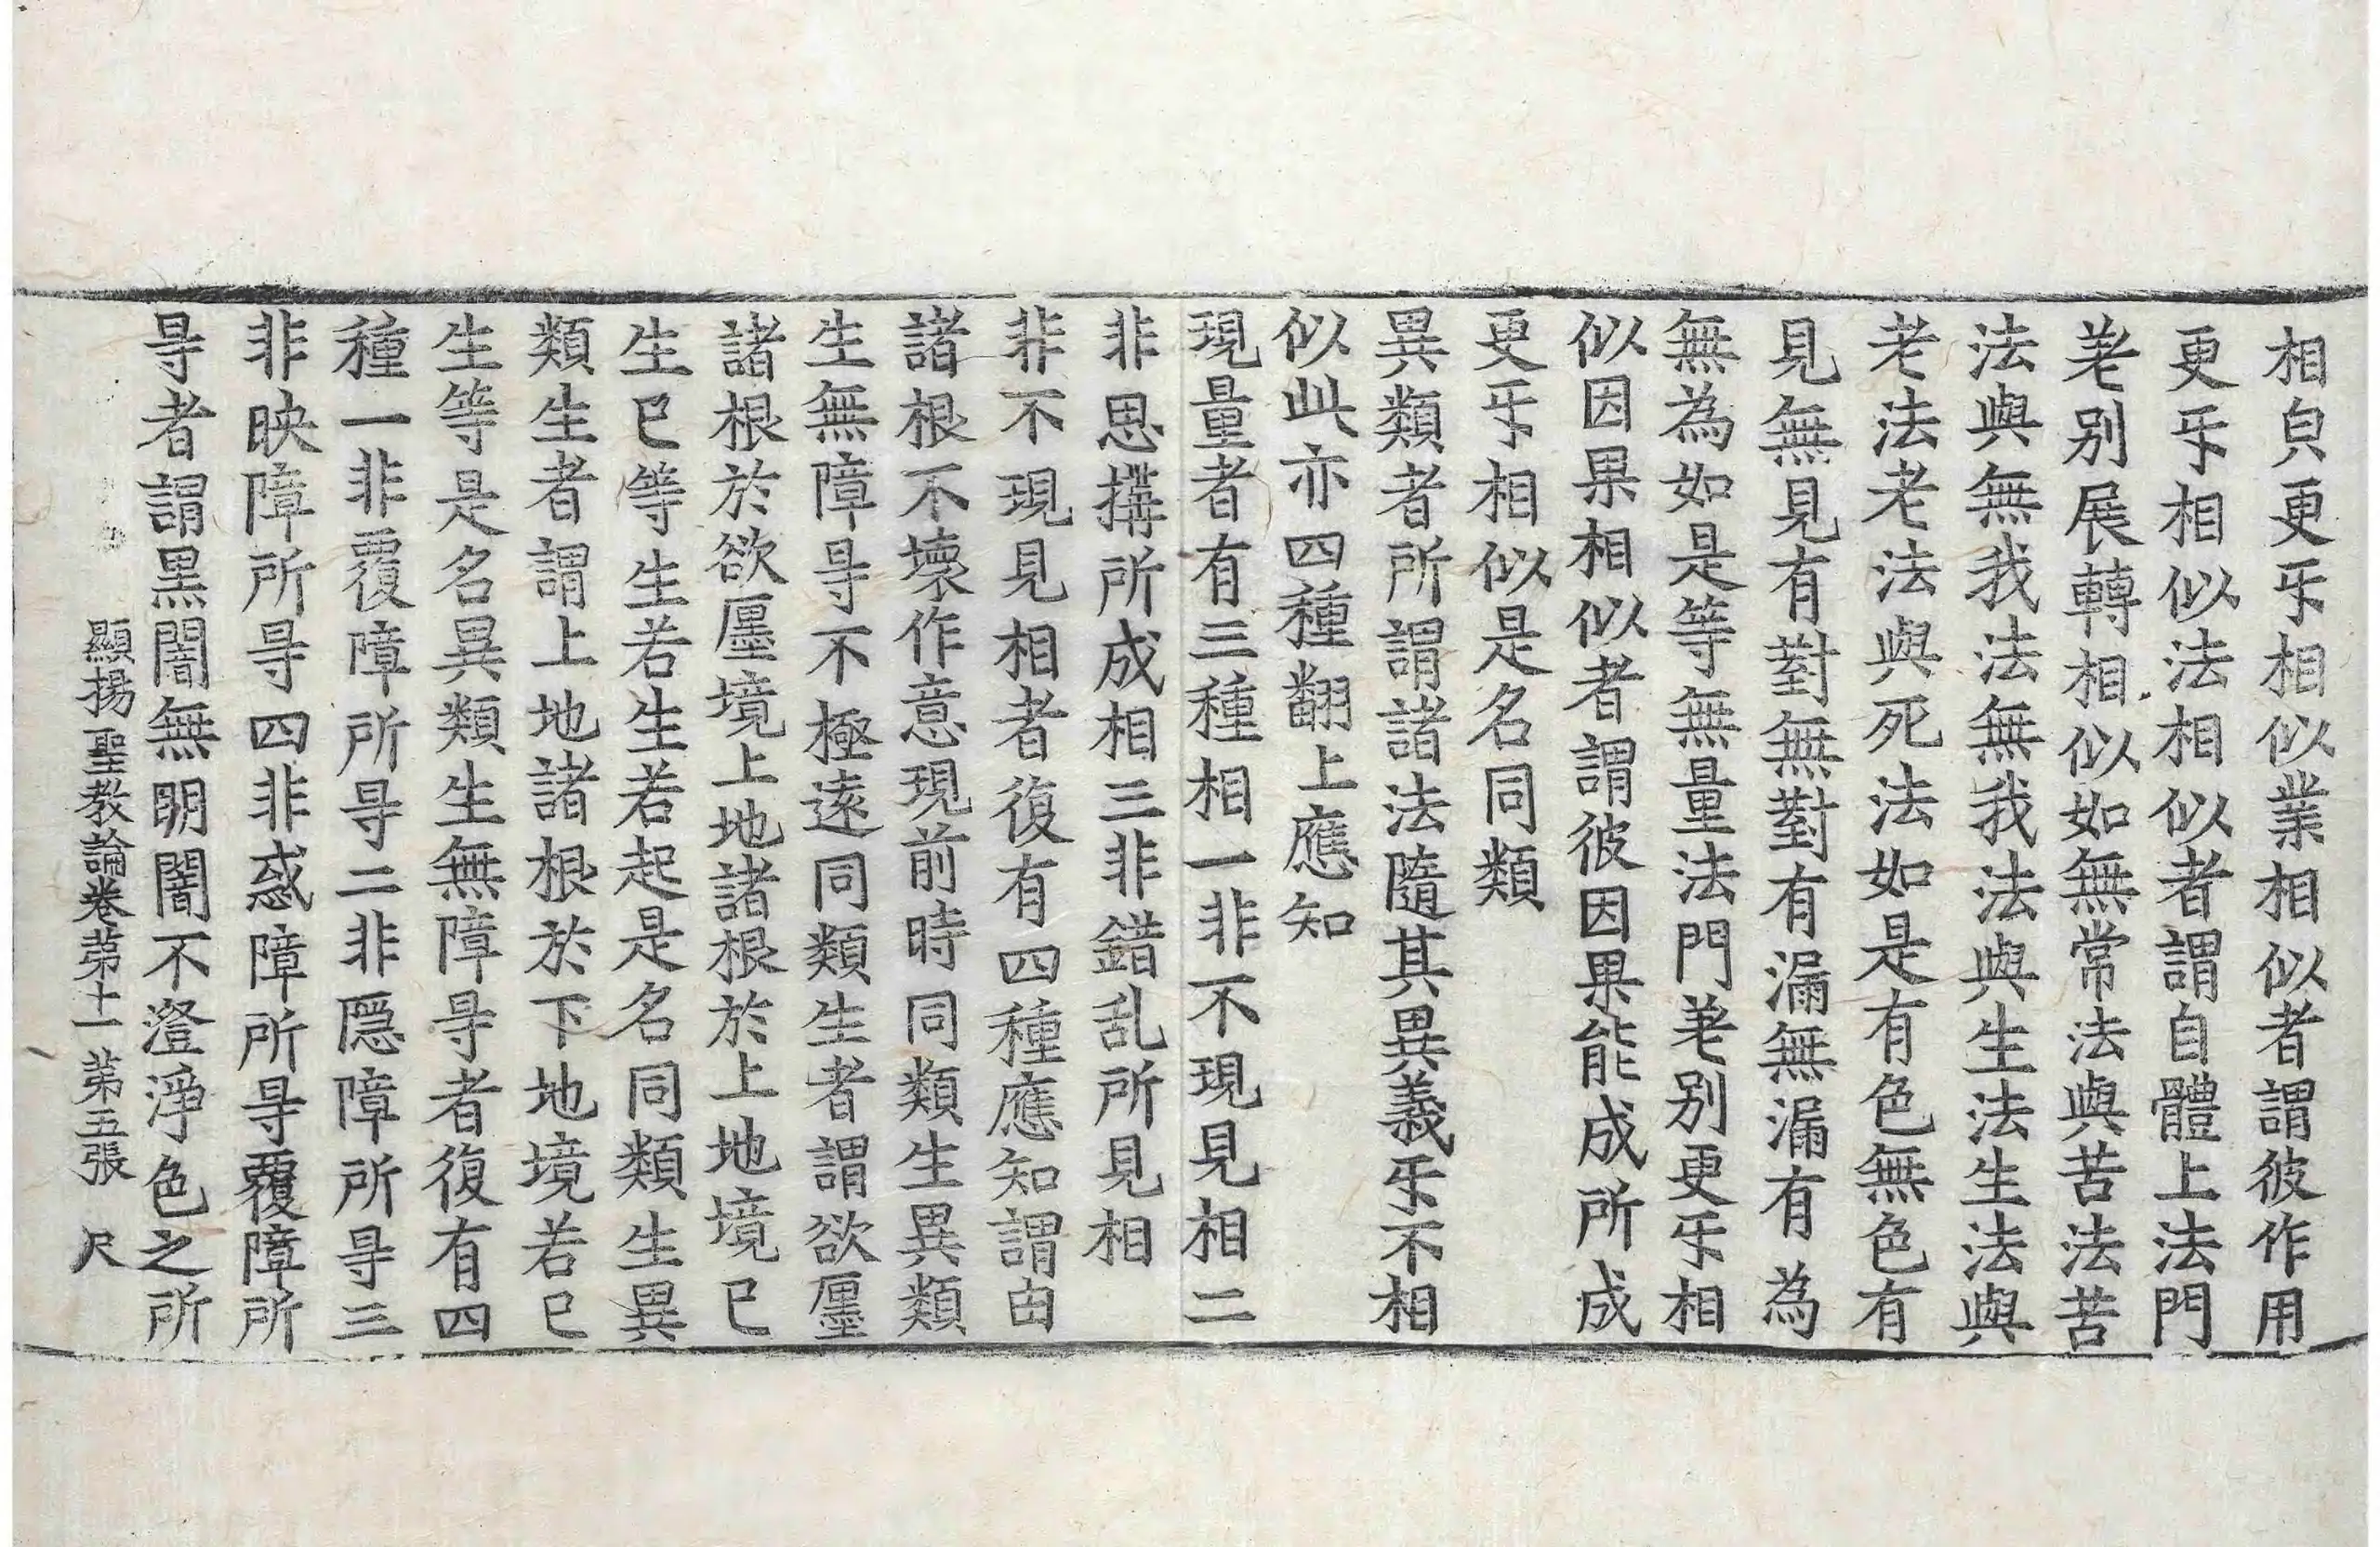 相皃更㸦相似業相似者謂彼作用
更㸦相似法相似者謂自體上法門
差别展轉相似如無常法與苦法苦
法與無我法無我法與生法生法與
老法老法與死法如是有色無色有
見無見有對無對有漏無漏有為
無為如是等無量法門差别更㸦相
似因果相似者謂彼因果能成所成
更㸦相似是名同類
異類者所謂諸法隨其異義㸦不相
似此亦四種翻上應知
現量者有三種相一非不現見相二
非思搆所成相三非錯乱所見相
非不現見相者復有四種應知謂由
諸根不壞作意現前時同類生異類
生無障㝵不極遠同類生者謂欲㕓
諸根於欲㕓境上地諸根於上地境已
生已等生若生若起是名同類生異
類生者謂上地諸根於下地境若已
生等是名異類生無障㝵者復有四
種一非覆障所㝵二非隱障所㝵三
非映障所㝵四非惑障所㝵覆障所
㝵者謂黒闇無明闇不澄淨色之所
顯揚聖教論卷第十一 第五張 尺